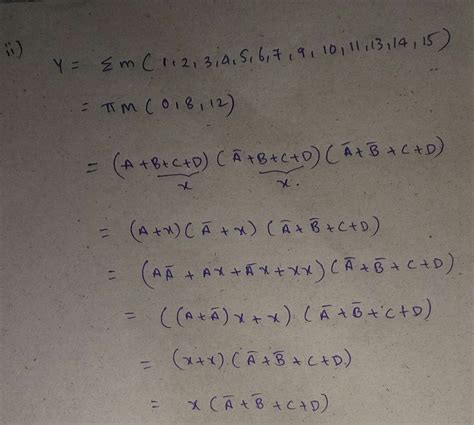 ii)
Y = Σm(1,2,3,4,5,6,7,9,10,11,13,14,15)
= πM(0,8,12)
= (A+B+C+D)(Ā+B+C+D)(Ā+B̄+C+D)
x x.
= (A+x)(Ā+x)(Ā+B̄+C+D)
= (AĀ+Ax+Āx+xx)(Ā+B̄+C+D)
= ((A+Ā)x+x)(Ā+B̄+C+D)
= (x+x)(Ā+B̄+C+D)
= x(Ā+B̄+C+D)